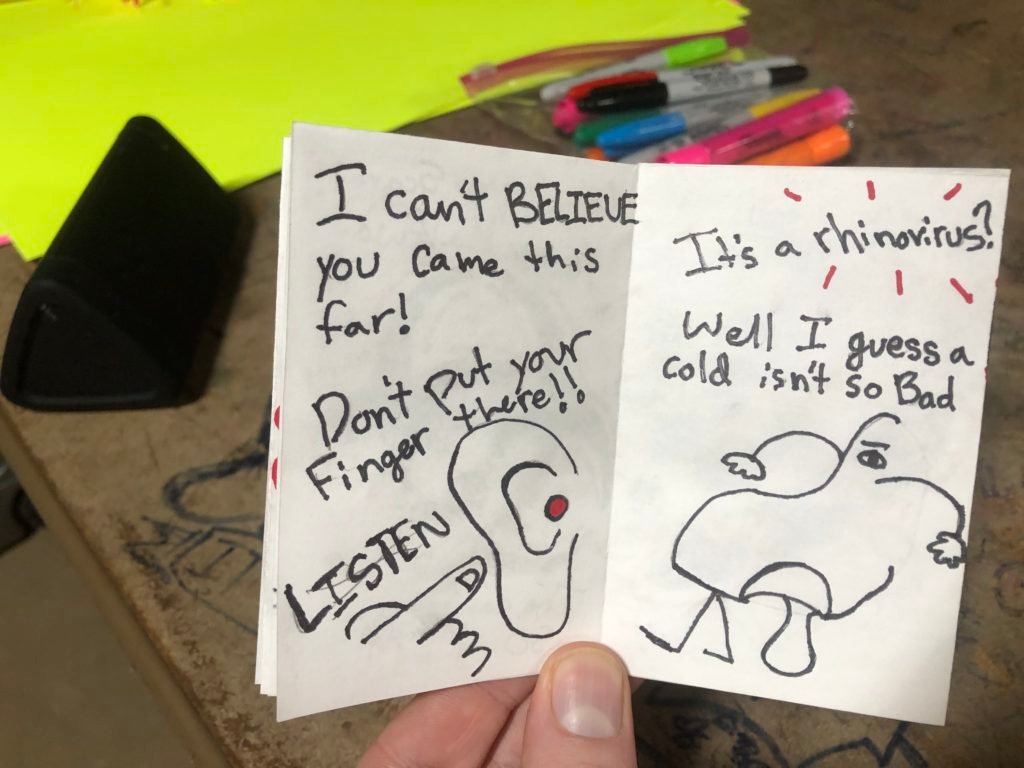 I can't BELIEVE
you came this
far!
Don't put your
Finger there!!
LISTEN
It's a rhinovirus?
Well I guess a
cold isn't so Bad